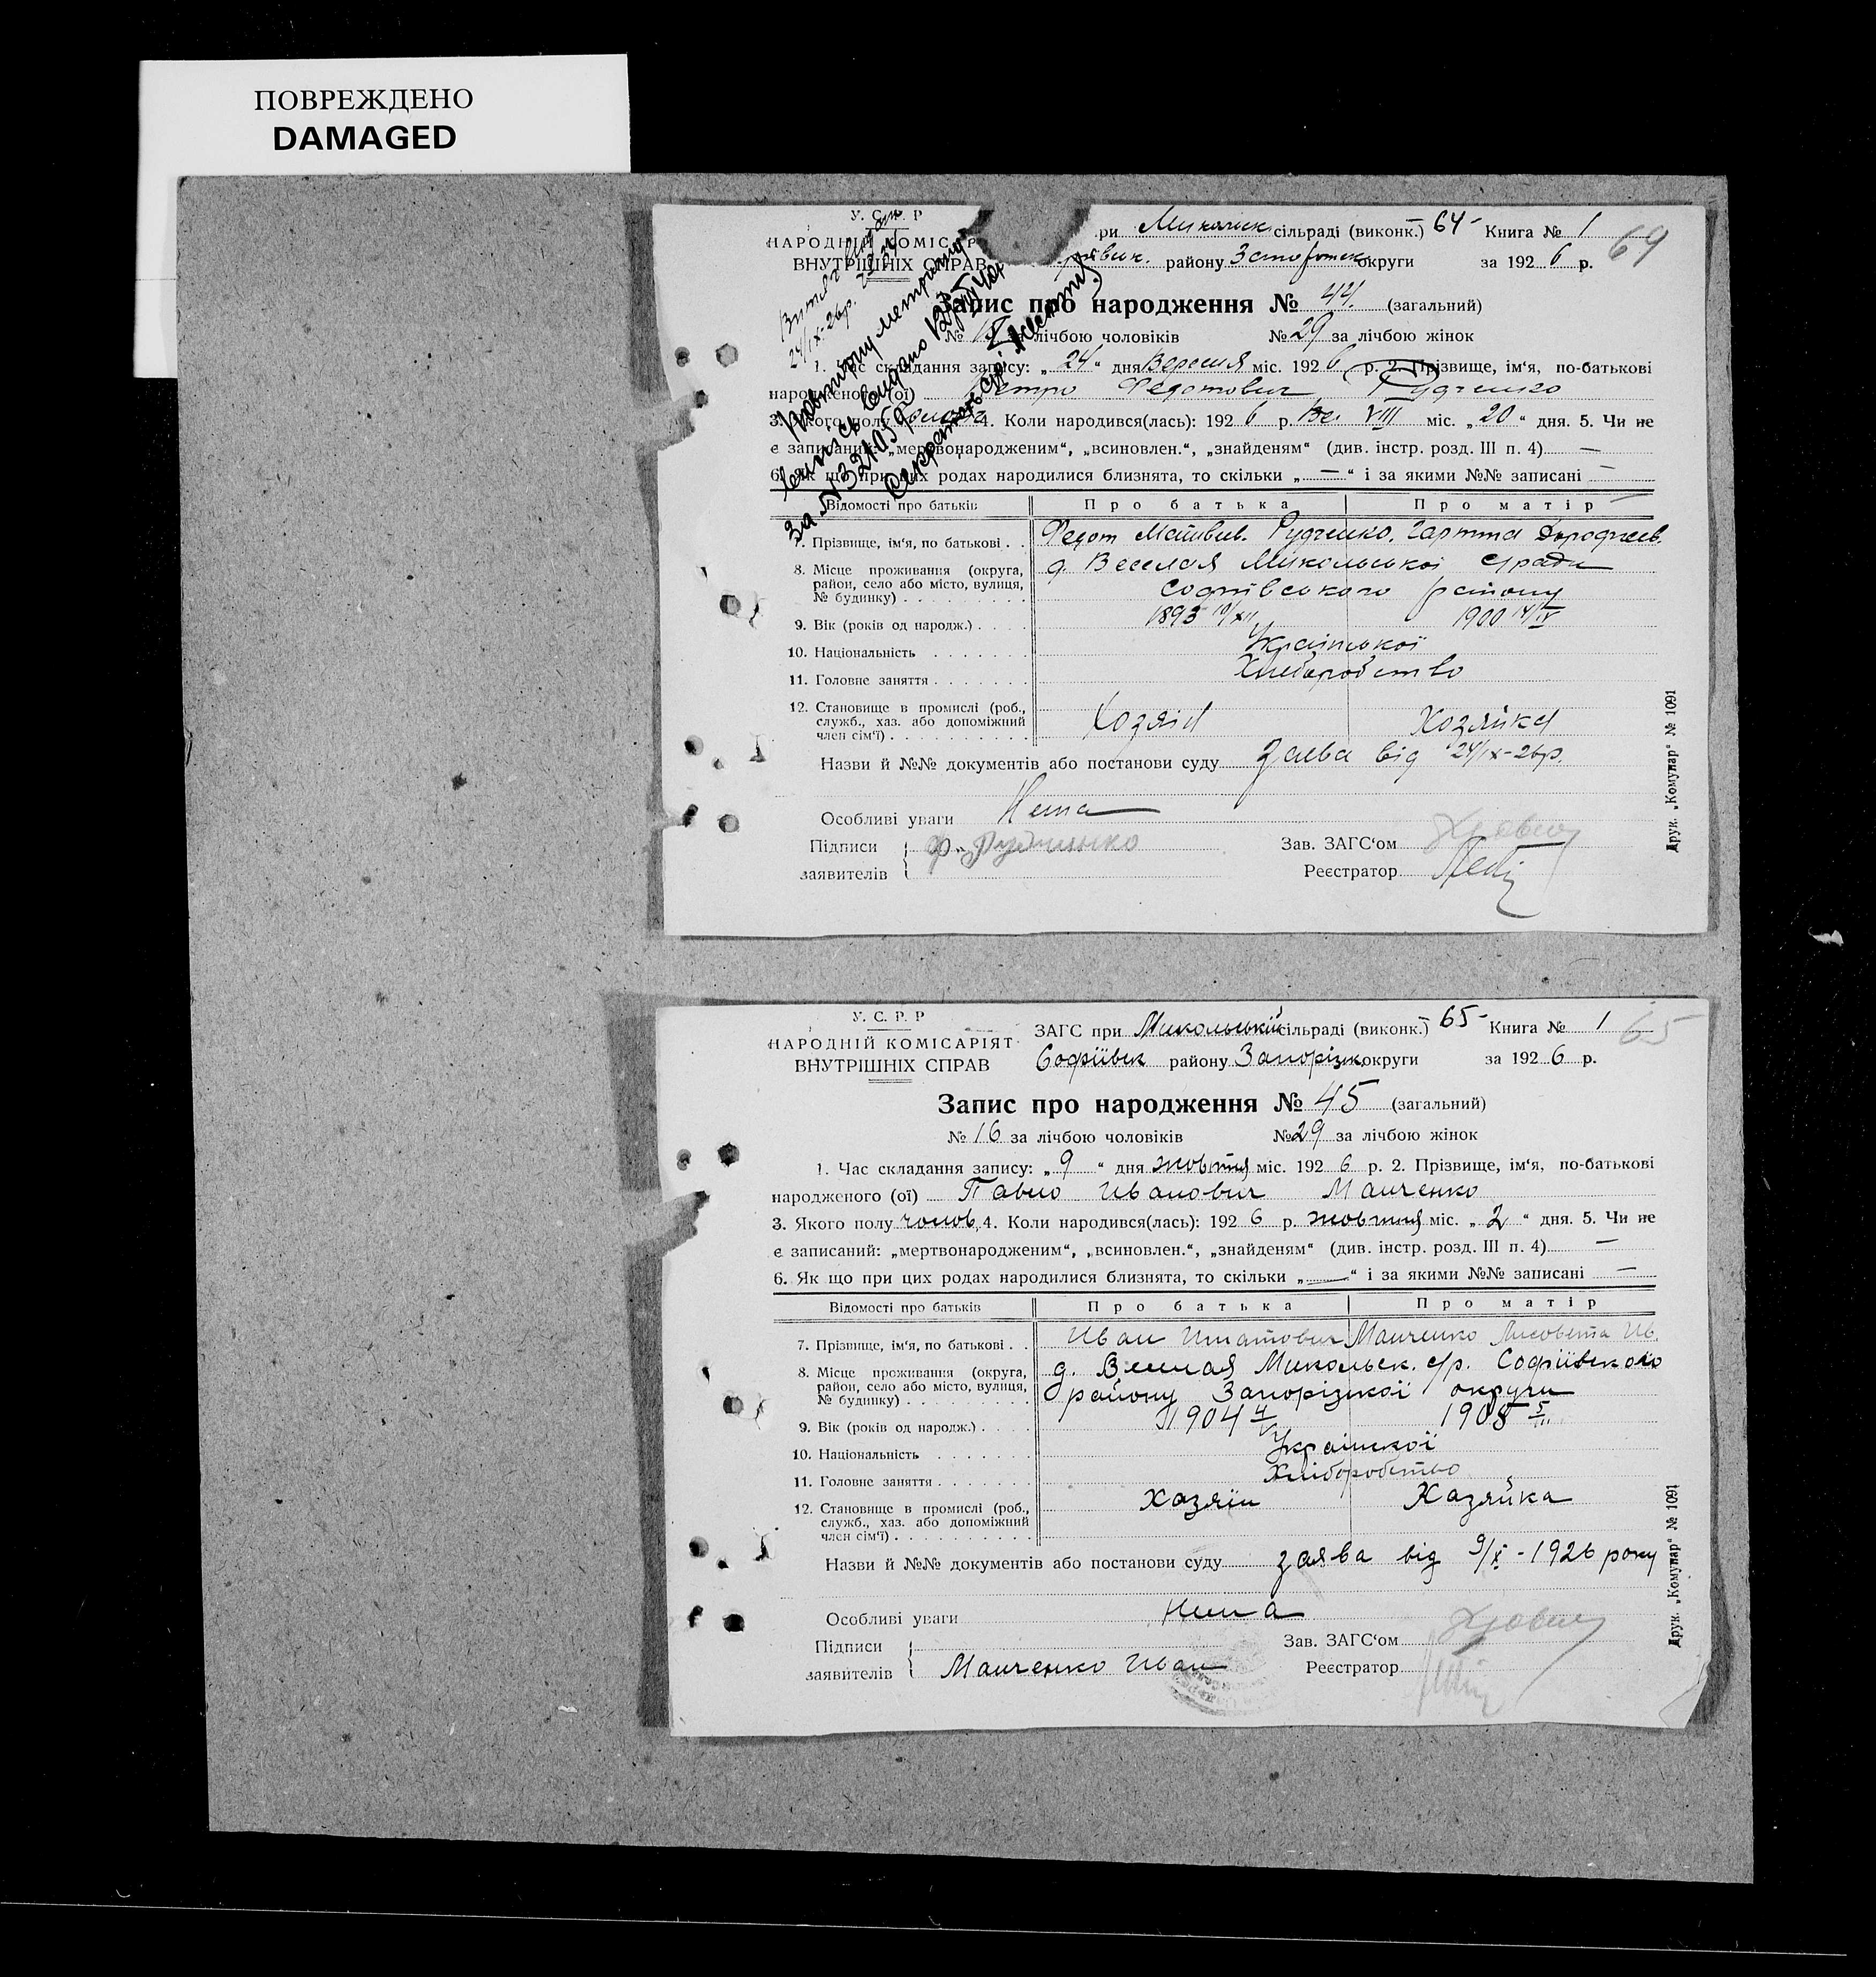 ПОВРЕЖДЕНО
DAMAGED
У. С. Р. Р
НАРОДНІЙ КОМІСАР
ВНУТРІШНІХ СПРАВ
при Микольск сільраді (виконк.) 64 Книга № 1
64
району округи за 192 6 р.
Запис про народження № 44 (загальний)
№ за лічбою чоловіків № 29 за лічбою жінок
1. Час складання запису: „ 24 “ дня Вересня міс. 192 6 р. 2. Прізвище, ім‘я, по-батькові
народженого (ої) Петро Федотович Рудченко
3. Якого полу 4. Коли народився(лась): 192 6 р. VIII міс. „ 20 “ дня. 5. Чи не
є записаний: „мертвонародженим“, „всиновлен.“, „знайденям“ (див. інстр. розд. III п. 4) —
6. Як що при цих родах народилися близнята, то скільки „ — “ і за якими №№ записані —
Відомості про батьків Про батька Про матір
7. Прізвище, ім‘я, по батькові . . Федот Матвієв. Рудченко,
8. Місце проживання (округа, д. Веселая Микольської с/ради
район, село або місто, вулиця, Софіївського району
№ будинку)
9. Вік (років од народж.) 1893 10/XII 1900 14/IV
10. Національність Української
11. Головне заняття Хліборобство
12. Становище в промислі (роб.,
служб., хаз. або допоміжний Хозяін Хозяйка
член сім‘ї)
Назви й №№ документів або постанови суду Заява від 24/IX-26р.
Особливі уваги Нема
Підписи Ф. Рудченко Зав. ЗАГС‘ом
заявителів Реєстратор
Друк. „Комунар“ № 1091
У. С. Р. Р
НАРОДНІЙ КОМІСАРІЯТ
ВНУТРІШНІХ СПРАВ
ЗАГС при Микольській сільраді (виконк.) 65 Книга № 1
65
Софіївськ району Запорізьк. округи за 192 6 р.
Запис про народження № 45 (загальний)
№ 16 за лічбою чоловіків № 29 за лічбою жінок
1. Час складання запису: „ 9 “ дня жовтня міс. 192 6 р. 2. Прізвище, ім‘я, по-батькові
народженого (ої) Павло Иванович Манченко
3. Якого полу чолов. 4. Коли народився(лась): 192 6 р. жовтня міс. „ 2 “ дня. 5. Чи не
є записаний: „мертвонародженим“, „всиновлен.“, „знайденям“ (див. інстр. розд. III п. 4) —
6. Як що при цих родах народилися близнята, то скільки „ — “ і за якими №№ записані —
Відомості про батьків Про батька Про матір
7. Прізвище, ім‘я, по батькові . . Иван Манченко Лисовета Ив.
8. Місце проживання (округа, д. Веселая Микольськ. с/р. Софіївського
район, село або місто, вулиця, району Запорізкої округи
№ будинку)
9. Вік (років од народж.) 1904 1908
10. Національність Українскої
11. Головне заняття Хліборобство
12. Становище в промислі (роб., Хазяїн Хазяйка
служб., хаз. або допоміжний
член сім‘ї)
Назви й №№ документів або постанови суду заява від 9/X - 1926 року
Особливі уваги Нема
Підписи Зав. ЗАГС‘ом
заявителів Манченко Иван Реєстратор
Друк. „Комунар“ № 1091